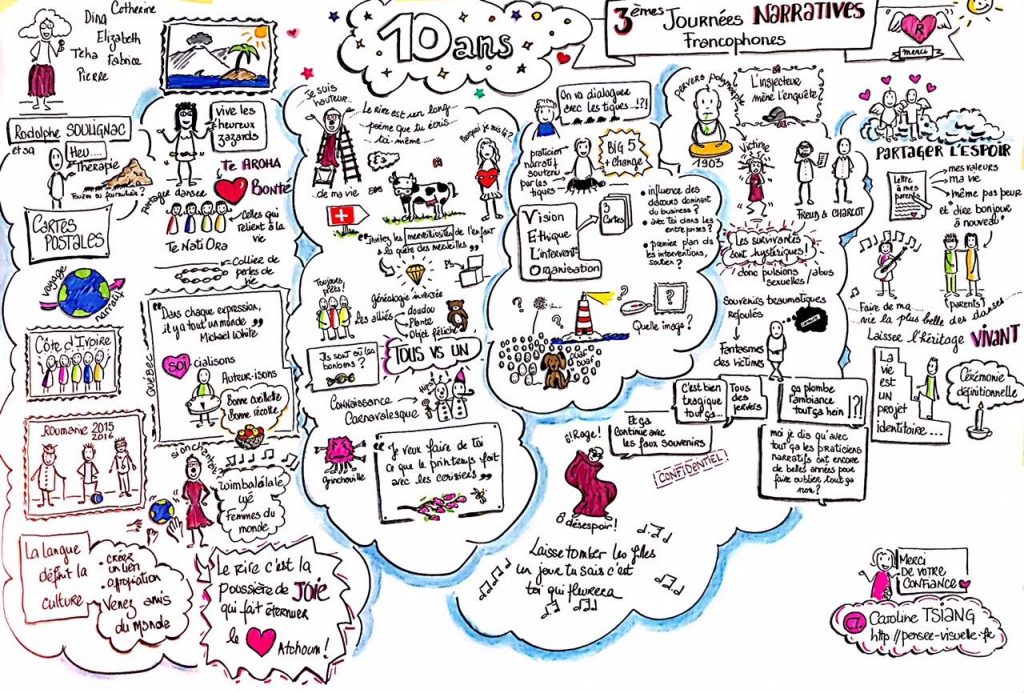 Dina
Catherine
Elizabeth
Teha
Fabrice
Pierre
10 ans
3èmes Journées Narratives
Francophones
R
merci
Rodolphe SOULIGNAC
et sa
Heu....
Thérapie
CARTES
POSTALES
voyage
narratif
Côte d'Ivoire
Roumanie 2015
2016
La langue
définit la
culture
• Créer
un lien
Venez amis
du Monde
vive les
heureux
zazards
Te AROHA
Bonté
partage danser
Celles qui
relient à la
vie
Te Nati Ora
Collier de
perles de
vie
"Dans chaque expression,
il y a tout un monde"
Michael White
Québec
SOI cialisons
Auteur-isons
Bonne cueillette
Bonne récolte
si on chantait
Wimbalélalé
Femmes du
monde
Le rire c'est la
poussière de JOIE
qui fait éternuer
le
Atchoum !
Je suis
hauteur...
de ma vie
Le rire est un long
poème que tu écris
toi-même....
Pourquoi je suis là ?
"Invitez les merveilleosités de l'enfant
à la quête des merveilles"
PS
Toujours
prêts !
Les alliés
généalogie inversée
doudou
Plante
Objet fétiche
Ils sont où les
bonbons ?
TOUS VS UN
Connaissance
Carnavalesque
Hips!
grinchouille
"Je veux faire de toi
ce que le printemps fait
avec les cerisiers"
On va dialoguer
avec les tiques...!?!
praticien
narratif
soutenu
par les
tiques
BIG 5
+ change
Vision
Ethique
L'intervento
Organisation
3
Cartes
• influence des
discours dominant
du business ?
• avec toi dans les
entreprises ?
• premier plan ds
les interventions,
soutien ?
?
Quelle image ?
ouaf
ouaf
pervers polymorphe
1903
L'inspecteur
mène l'enquête
Victime
FREUD & CHARLOT
Les survivantes
sont hystériques !
donc pulsions abus
sexuelles /
Souvenirs traumatiques
refoulés
Fantasmes
des victimes
C'est bien
tragique
tout ça...
Tous
des
pervers
ça plombe
l'ambiance
tout ça hein
!?!
Et ça
continue avec
les faux souvenirs
moi je dis qu'avec
tout ça les praticiens
narratifs ont encore
de belles années pour
faire oublier tout ça
non ?
CONFIDENTIEL
Ô Rage !
Ô désespoir !
Laisse tomber les filles
un jour tu sais c'est
toi qui pleurera
PARTAGER L'ESPOIR
Lettre
à mes
parents
mes valeurs
ma vie
même pas peur
et "dire bonjour
à nouveau"
Faire de ma...
(parents)
vie la plus belle des danses...
Laisser l'héritage VIVANT
La
vie
est
un
projet
identitaire...
Cérémonie
définitionnelle
Merci
DE VOTRE
CONFIANCE
CT.
Caroline TSIANG
http://pensee-visuelle.fr